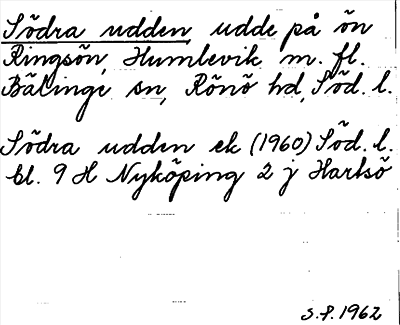 Södra udden, udde på ön
Ringsön, Humlevik m. fl.
Bälinge sn, Rönö hd, Söd. l.
Södra udden ek (1960) Söd. l.
bl. 9 H Nyköping 2 j Hartsö
S.P. 1962